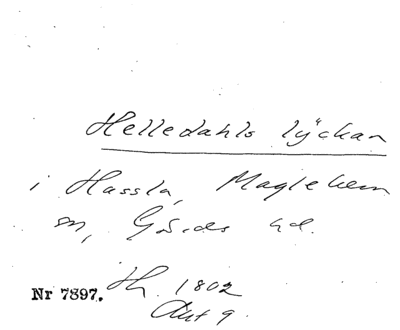 Helledahls lÿckan
i Hassla, Maglehem
sn, Gärds hd.
Nr 7897. Th. 1802
Akt 9.